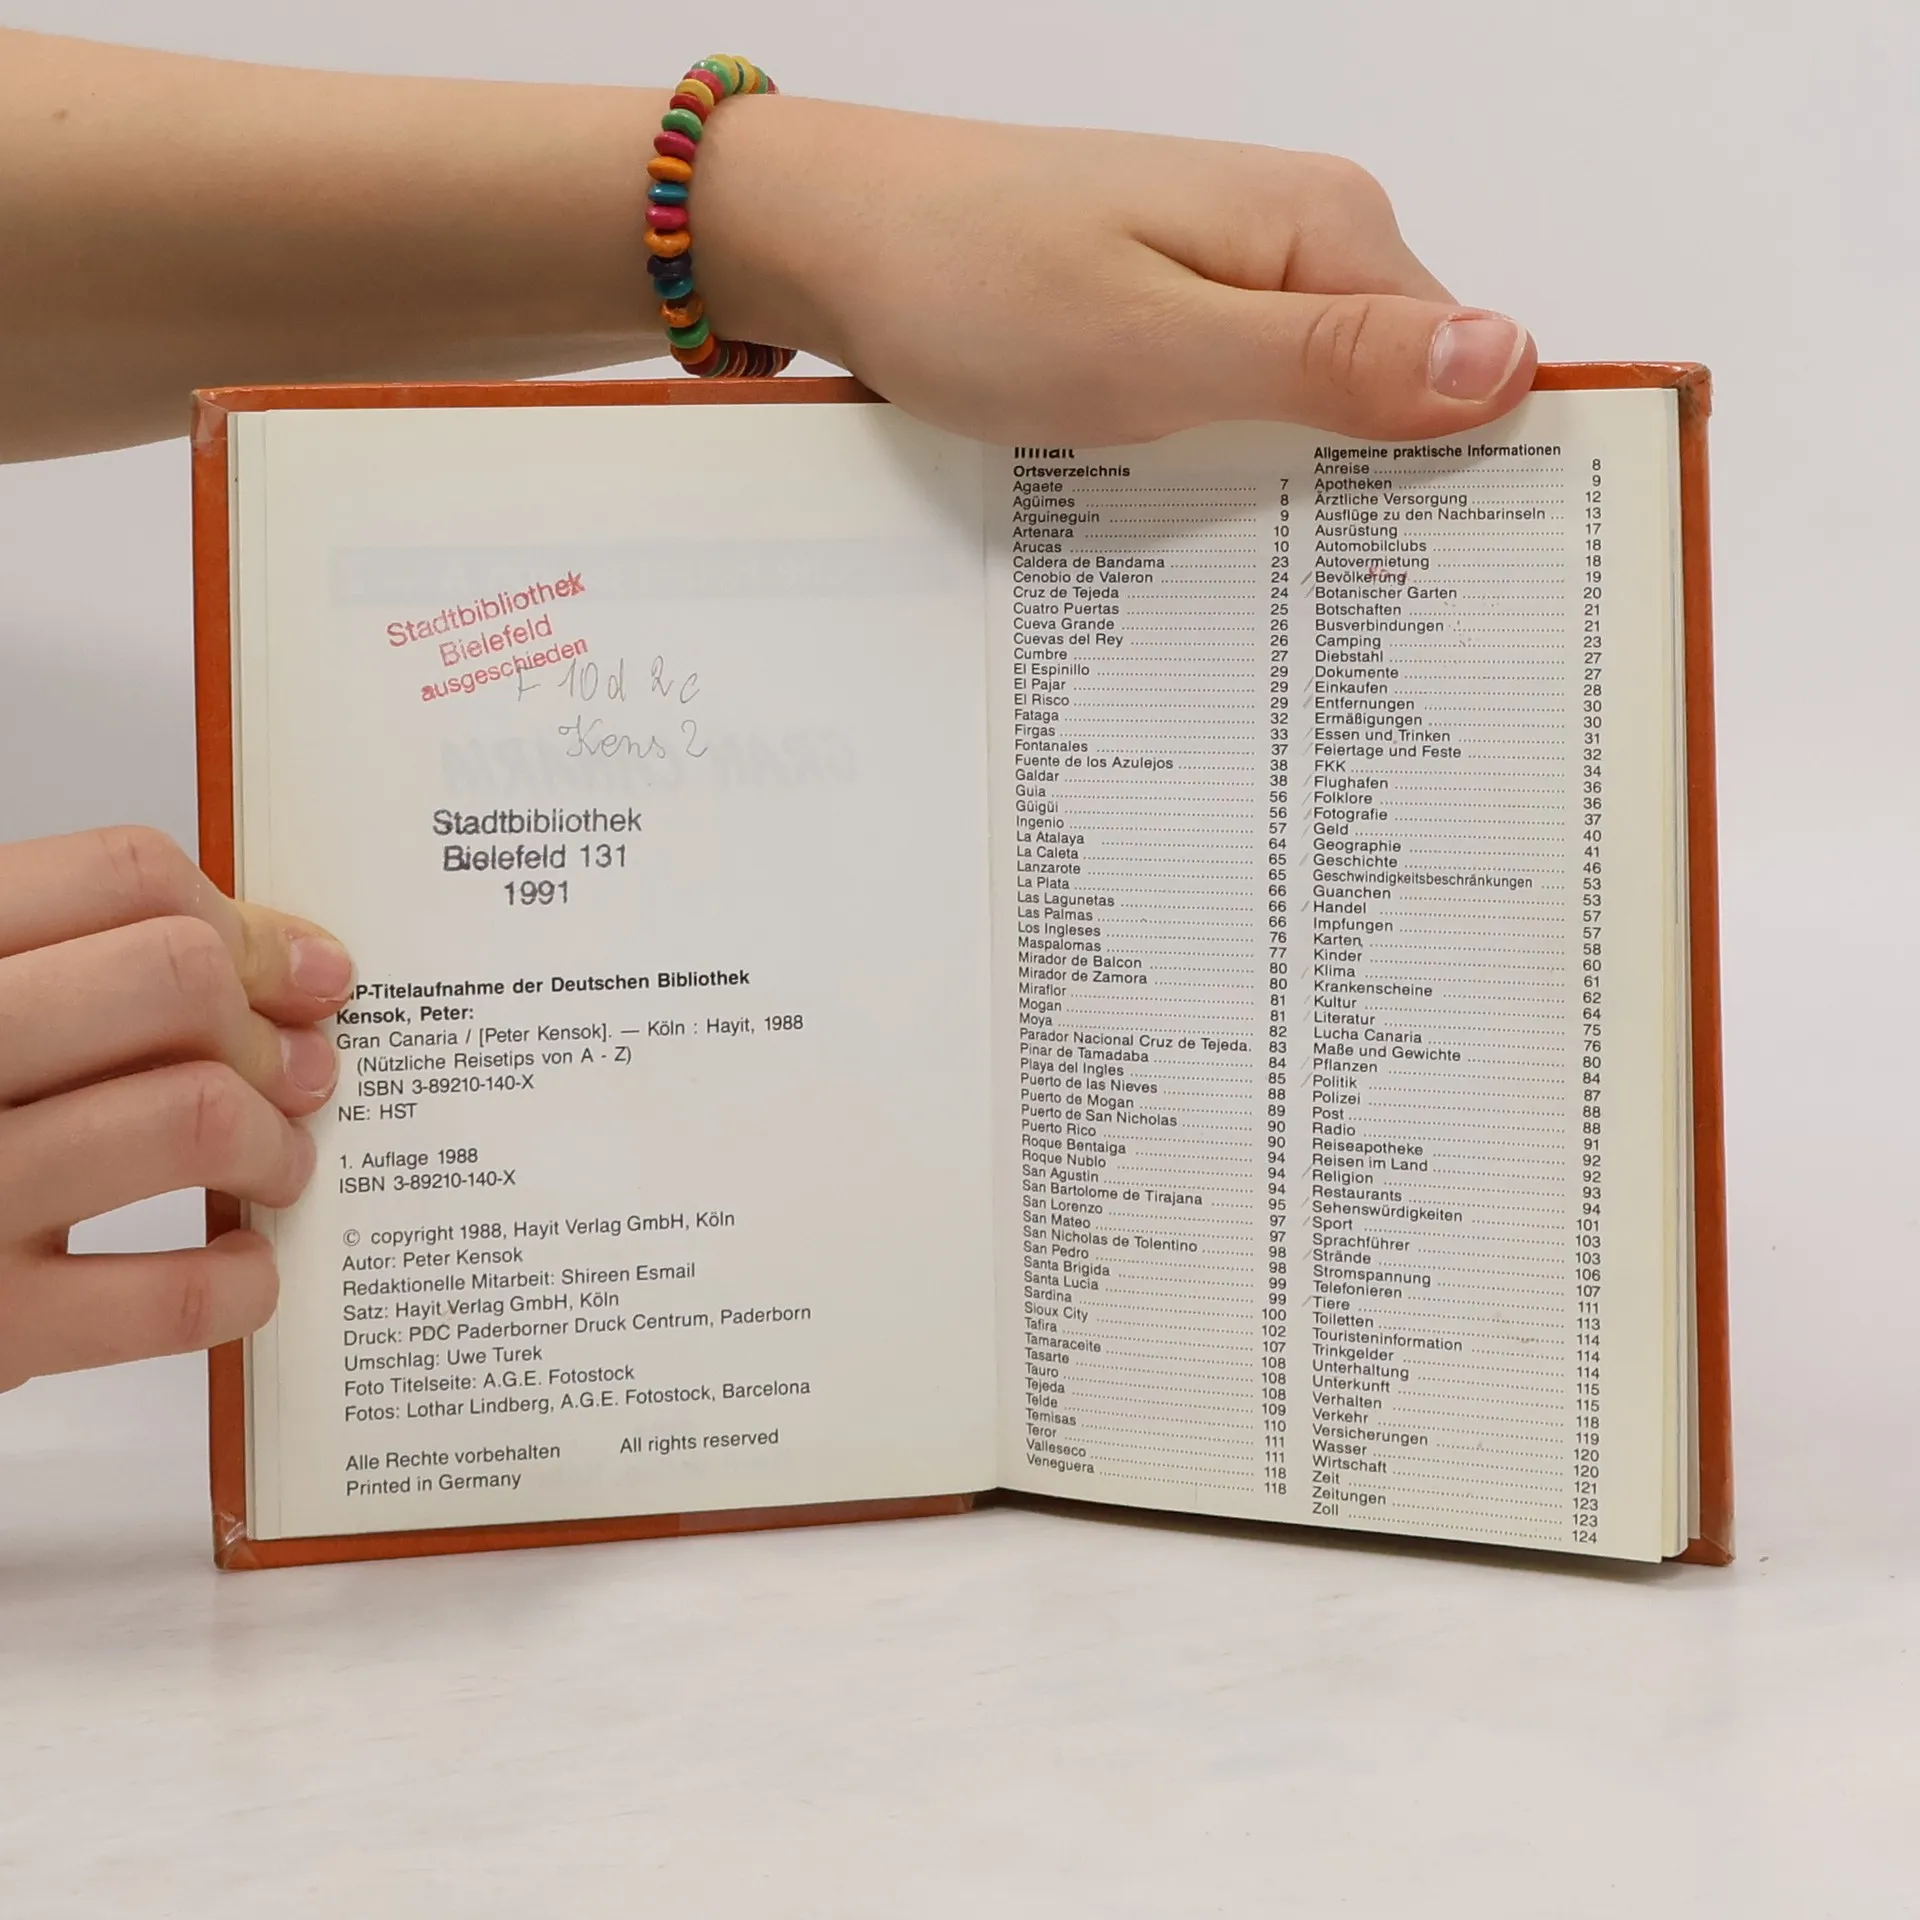 Stadtbibliothek
Bielefeld
ausgeschieden
10d 2c
Kens 2
Stadtbibliothek
Bielefeld 131
1991
IP-Titelaufnahme der Deutschen Bibliothek
Kensok, Peter:
Gran Canaria / [Peter Kensok]. — Köln : Hayit, 1988
(Nützliche Reisetips von A - Z)
ISBN 3-89210-140-X
NE: HST
1. Auflage 1988
ISBN 3-89210-140-X
© copyright 1988, Hayit Verlag GmbH, Köln
Autor: Peter Kensok
Redaktionelle Mitarbeit: Shireen Esmail
Satz: Hayit Verlag GmbH, Köln
Druck: PDC Paderborner Druck Centrum, Paderborn
Umschlag: Uwe Turek
Foto Titelseite: A.G.E. Fotostock
Fotos: Lothar Lindberg, A.G.E. Fotostock, Barcelona
Alle Rechte vorbehalten All rights reserved
Printed in Germany
Inhalt
Ortsverzeichnis
Agaete 7
Agüimes 8
Arguineguin 9
Artenara 10
Arucas 10
Caldera de Bandama 23
Cenobio de Valeron 24
Cruz de Tejeda 24
Cuatro Puertas 25
Cueva Grande 26
Cuevas del Rey 26
Cumbre 27
El Espinillo 29
El Pajar 29
El Risco 29
Fataga 32
Firgas 33
Fontanales 37
Fuente de los Azulejos 38
Galdar 38
Guia 56
Güigüi 56
Ingenio 57
La Atalaya 64
La Caleta 65
Lanzarote 65
La Plata 66
Las Lagunetas 66
Las Palmas 66
Los Ingleses 76
Maspalomas 77
Mirador de Balcon 80
Mirador de Zamora 80
Miraflor 81
Mogan 81
Moya 82
Parador Nacional Cruz de Tejeda. 83
Pinar de Tamadaba 84
Playa del Ingles 85
Puerto de las Nieves 88
Puerto de Mogan 89
Puerto de San Nicholas 90
Puerto Rico 90
Roque Bentaiga 94
Roque Nublo 94
San Agustin 94
San Bartolome de Tirajana 95
San Lorenzo 97
San Mateo 97
San Nicholas de Tolentino 98
San Pedro 98
Santa Brigida 99
Santa Lucia 99
Sardina 100
Sioux City 102
Tafira 107
Tamaraceite 108
Tasarte 108
Tauro 108
Tejeda 109
Telde 110
Temisas 111
Teror 111
Valleseco 118
Veneguera 118
Allgemeine praktische Informationen
Anreise 8
Apotheken 9
Ärztliche Versorgung 12
Ausflüge zu den Nachbarinseln 13
Ausrüstung 17
Automobilclubs 18
Autovermietung 18
Bevölkerung 19
Botanischer Garten 20
Botschaften 21
Busverbindungen 21
Camping 23
Diebstahl 27
Dokumente 27
Einkaufen 28
Entfernungen 30
Ermäßigungen 30
Essen und Trinken 31
Feiertage und Feste 32
FKK 34
Flughafen 36
Folklore 36
Fotografie 37
Geld 40
Geographie 41
Geschichte 46
Geschwindigkeitsbeschränkungen 53
Guanchen 53
Handel 57
Impfungen 57
Karten 58
Kinder 60
Klima 61
Krankenscheine 62
Kultur 64
Literatur 75
Lucha Canaria 76
Maße und Gewichte 80
Pflanzen 84
Politik 87
Polizei 88
Post 88
Radio 91
Reiseapotheke 92
Reisen im Land 92
Religion 93
Restaurants 94
Sehenswürdigkeiten 101
Sport 103
Sprachführer 103
Strände 106
Stromspannung 107
Telefonieren 111
Tiere 113
Toiletten 114
Touristeninformation 114
Trinkgelder 114
Unterhaltung 115
Unterkunft 115
Verhalten 118
Verkehr 119
Versicherungen 120
Wasser 120
Wirtschaft 121
Zeit 123
Zeitungen 123
Zoll 124